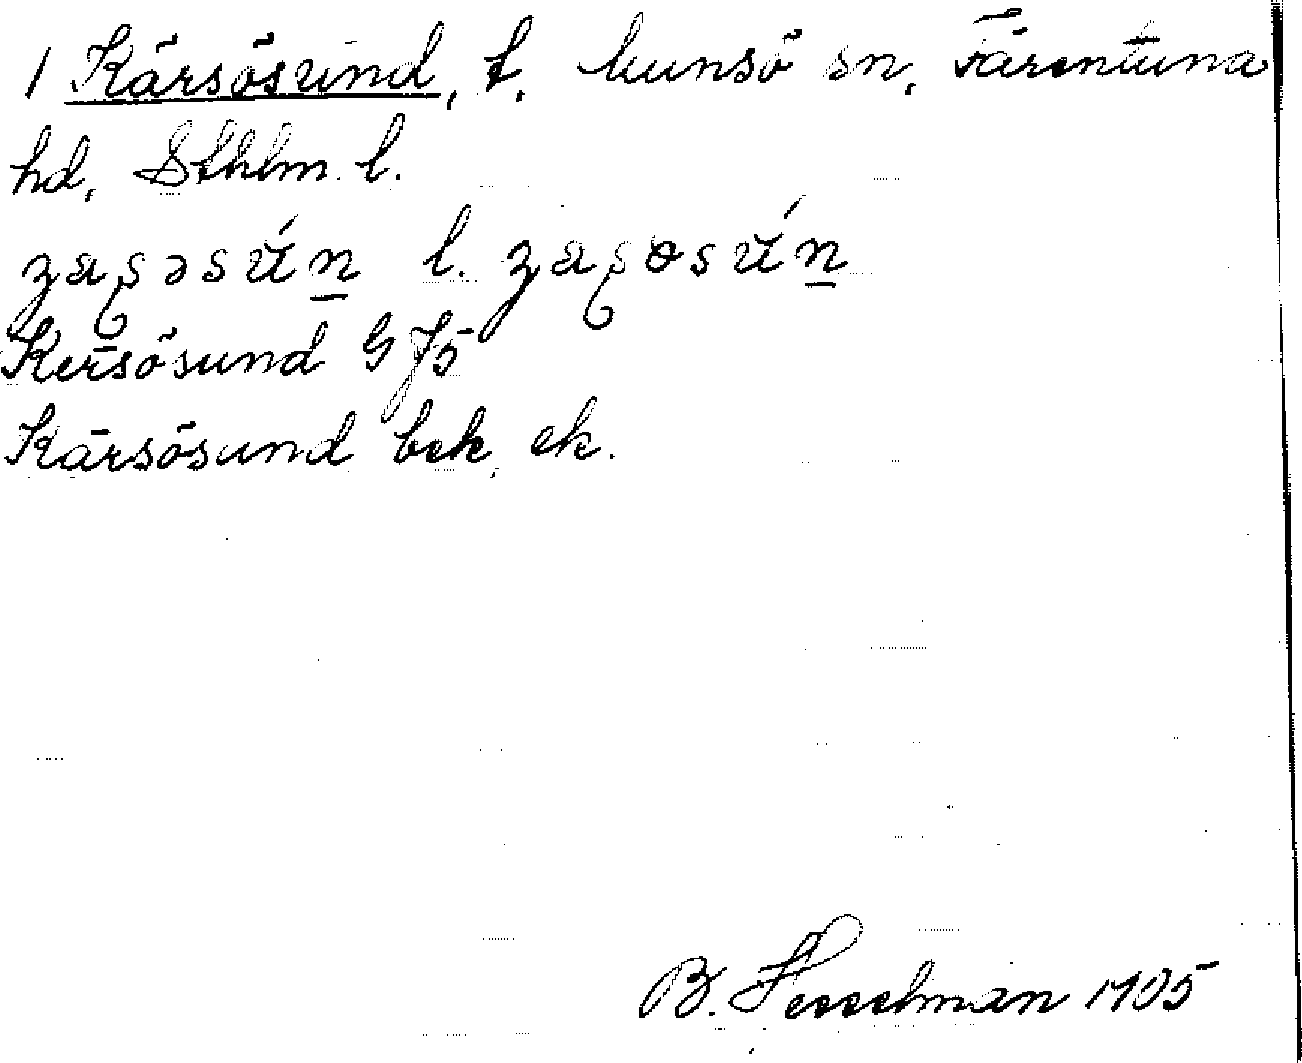 1 Kärsösund, t. Lunsö sn, Färentuna
hd, Sthlm l.
l.
Kersösund G J5
Kärsösund bek. ek.
B. Hesselman 1905